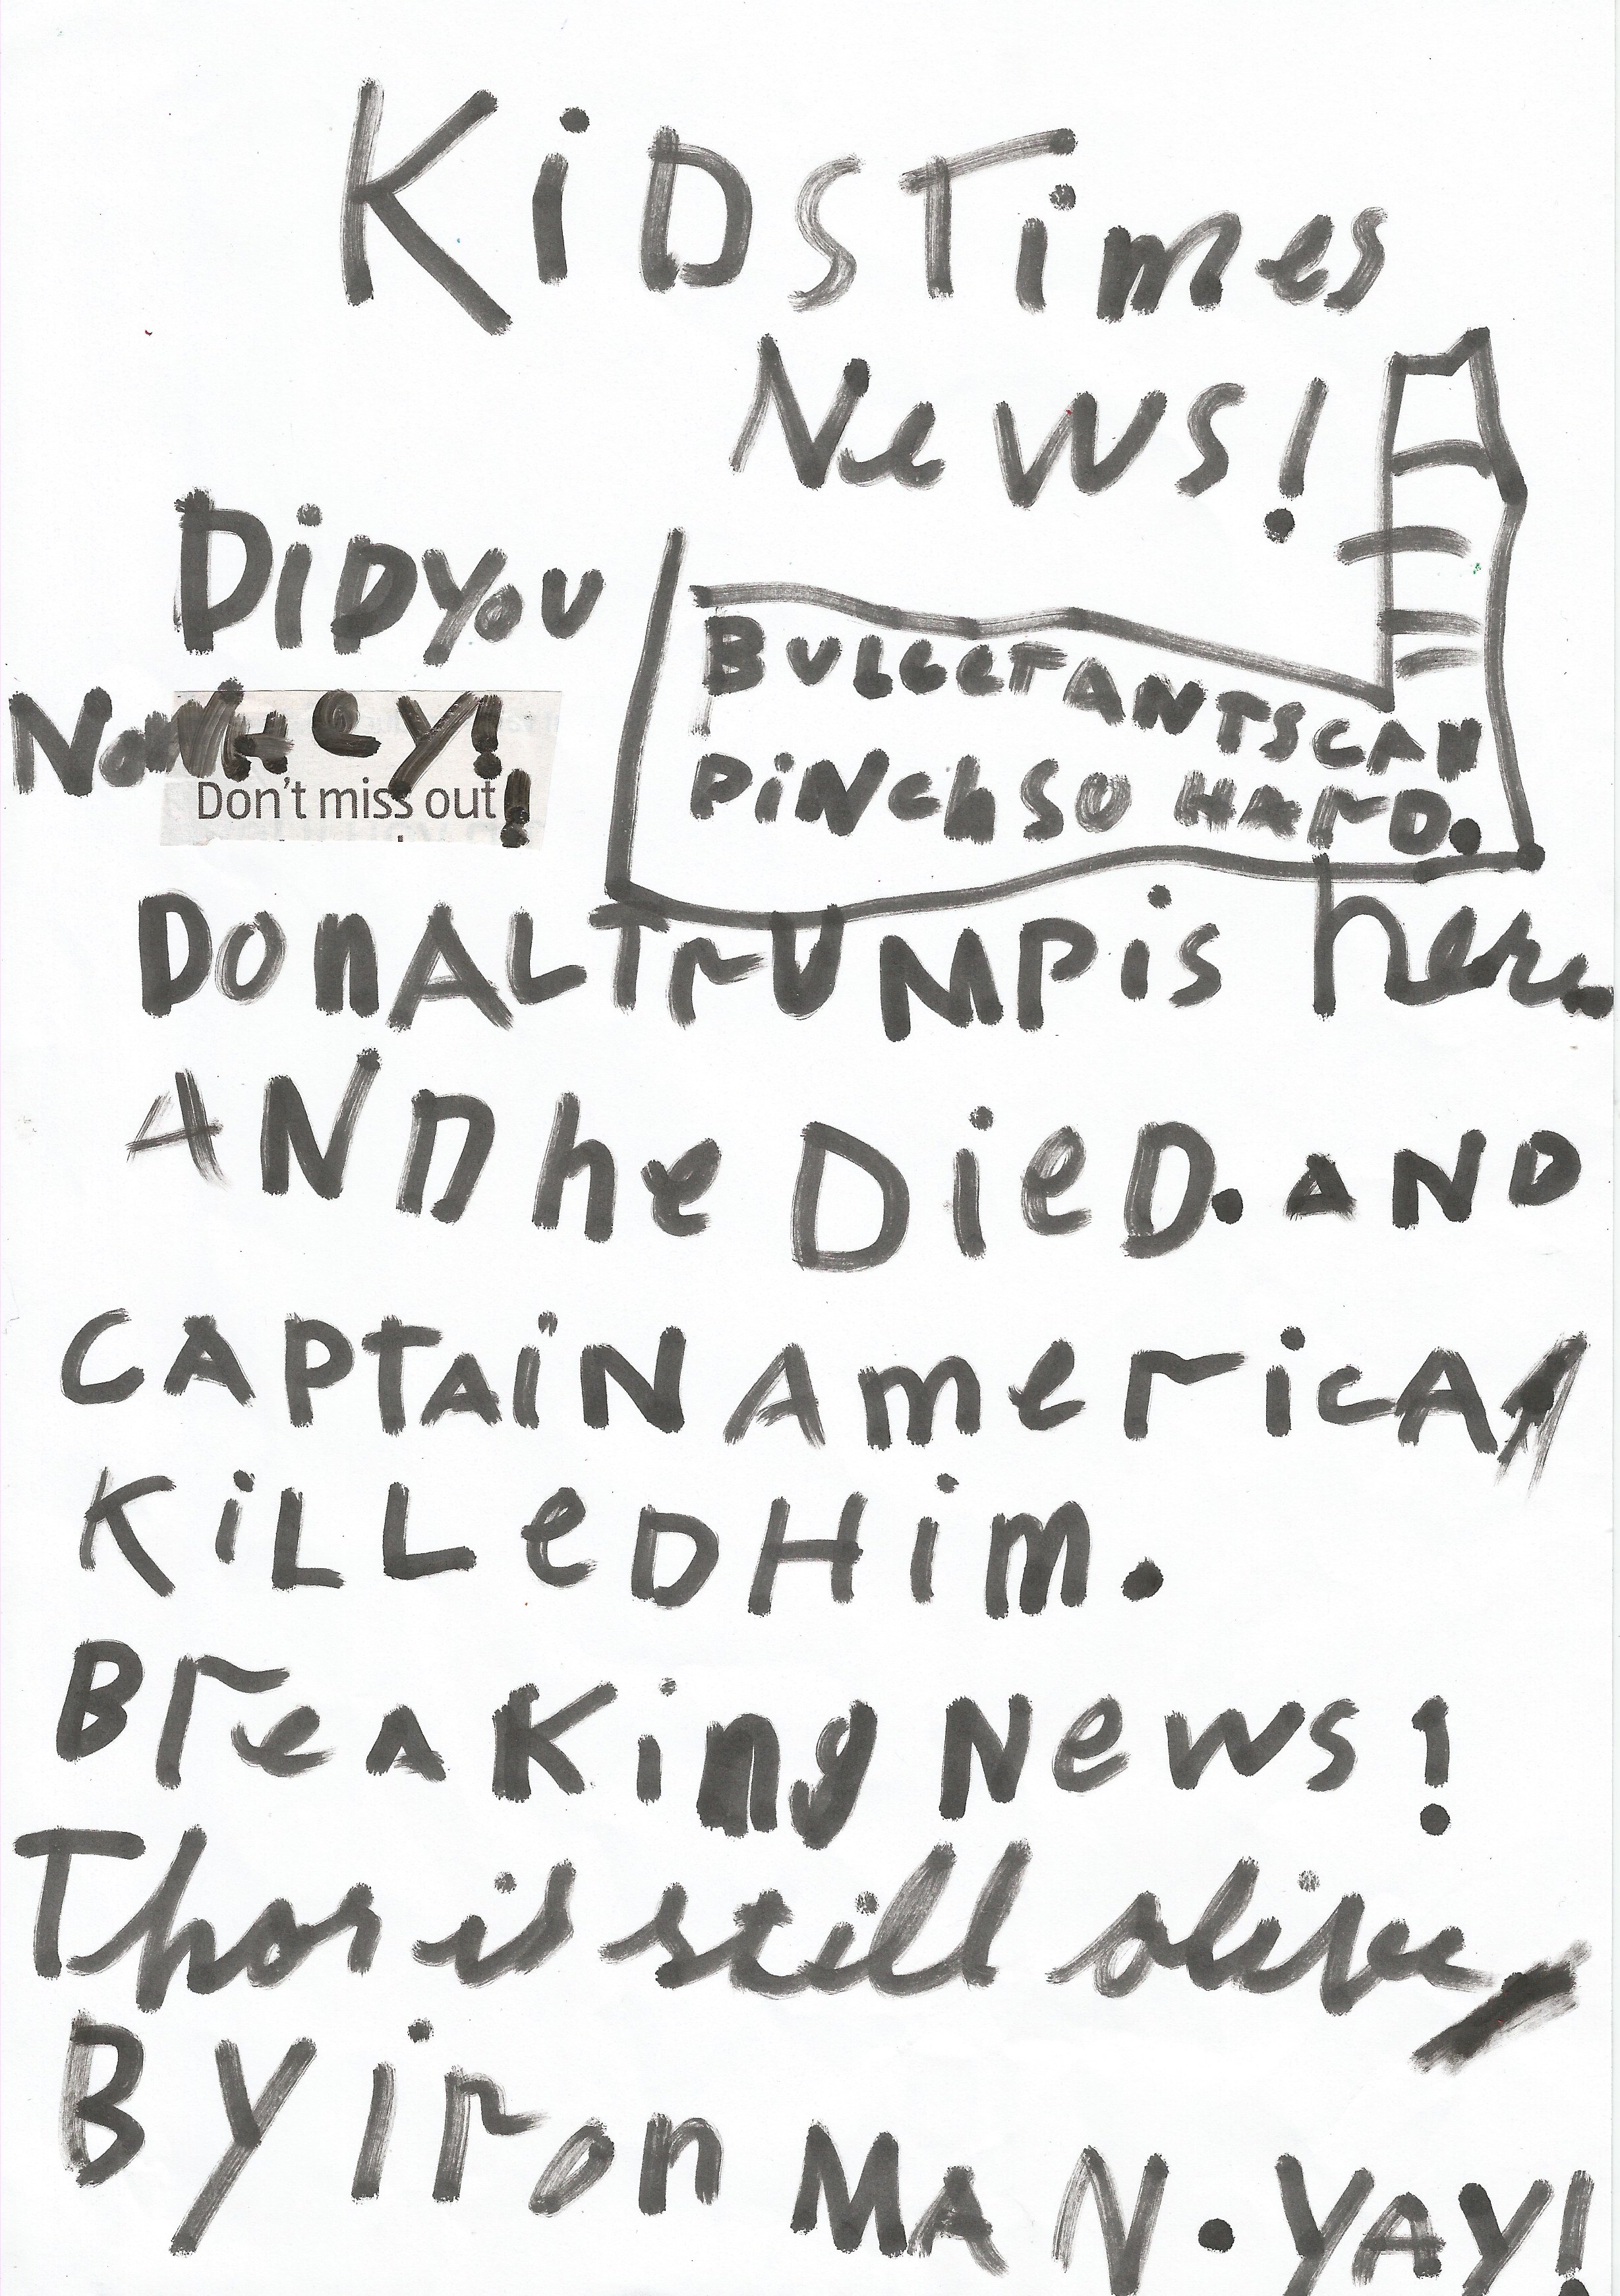 KiDSTimes
News!
DiDyou
Now Hey!
Don't miss out!
BULLCETANTSCAN
PiNchSO HArD.
DonALTrUMPis here.
ANDhe DieD. AND
CAPTAiNAmericA
KiLLeDHim.
BreAKing News!
Thor is still alive
By iron MAN. YAY!